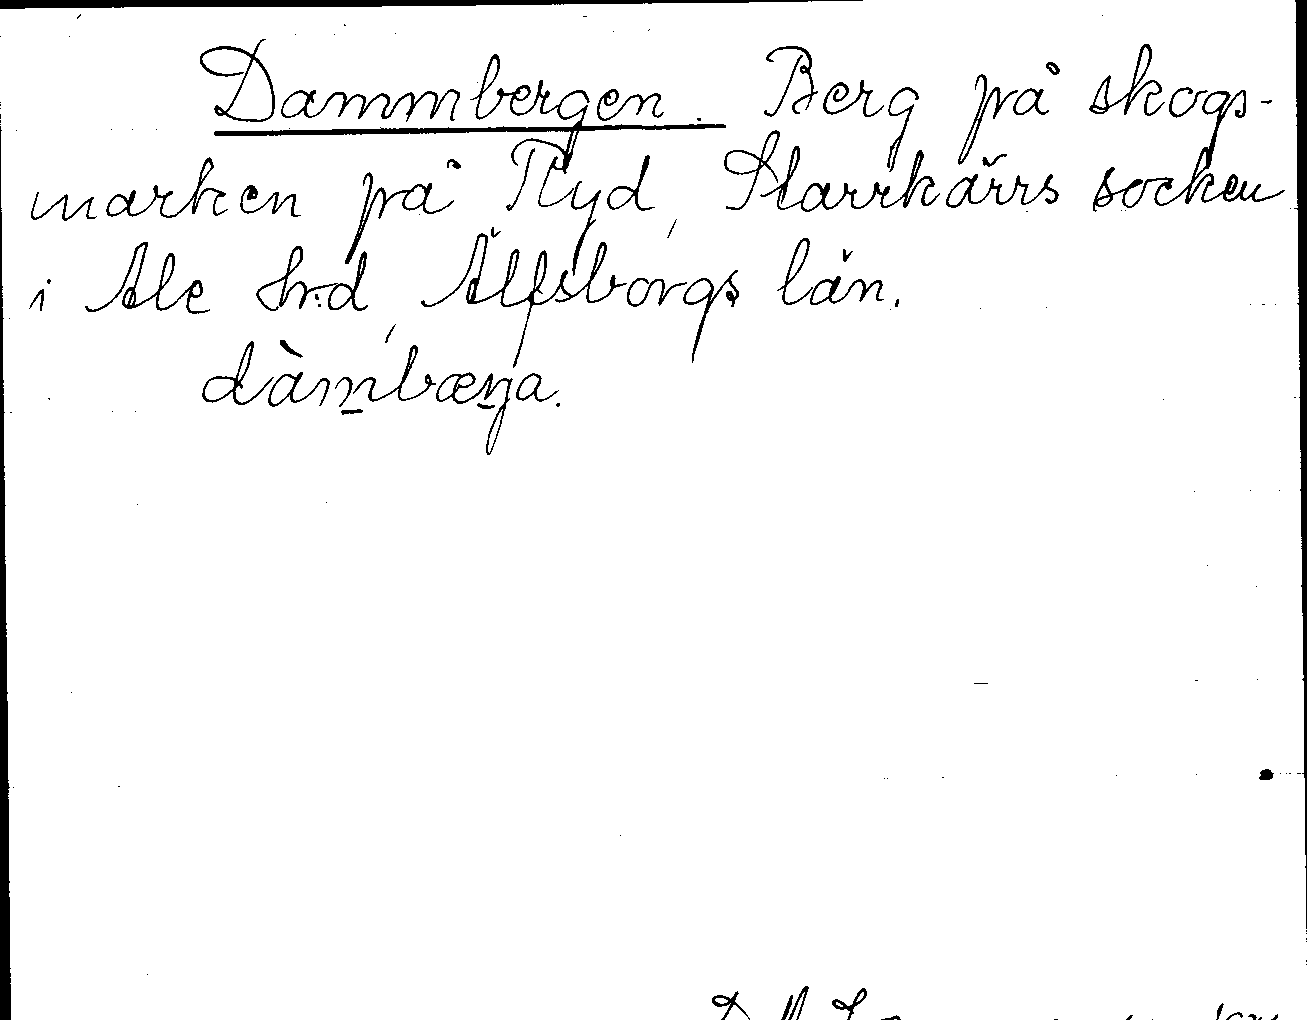 Dammbergen. Berg på skogs-
marken på Ryd, Starrkärrs socken
i Ale hrd, Älfsborgs län.
dàm̲bæṉja.